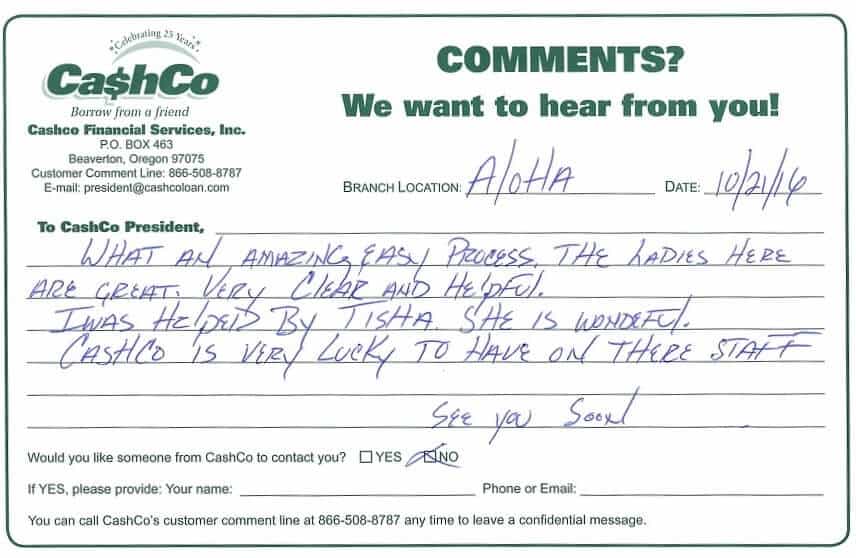 Celebrating 25 Years
Ca$hCo
Borrow from a friend
Cashco Financial Services, Inc.
P.O. BOX 463
Beaverton, Oregon 97075
Customer Comment Line: 866-508-8787
E-mail: president@cashcoloan.com
COMMENTS?
We want to hear from you!
BRANCH LOCATION: AloHA DATE: 10/21/16
To CashCo President,
WHAT AN AMAZING, EASY PROCESS. THE LADIES HERE
ARE GREAT. VERY CLEAR AND HElpFUl.
I WAS HElpED BY TISHA. SHE IS WONDEFUl.
CASHCO IS VERY LUCKY TO HAVE ON THERE STAFF
SEE you SOON
Would you like someone from CashCo to contact you? YES NO
If YES, please provide: Your name: Phone or Email:
You can call CashCo's customer comment line at 866-508-8787 any time to leave a confidential message.